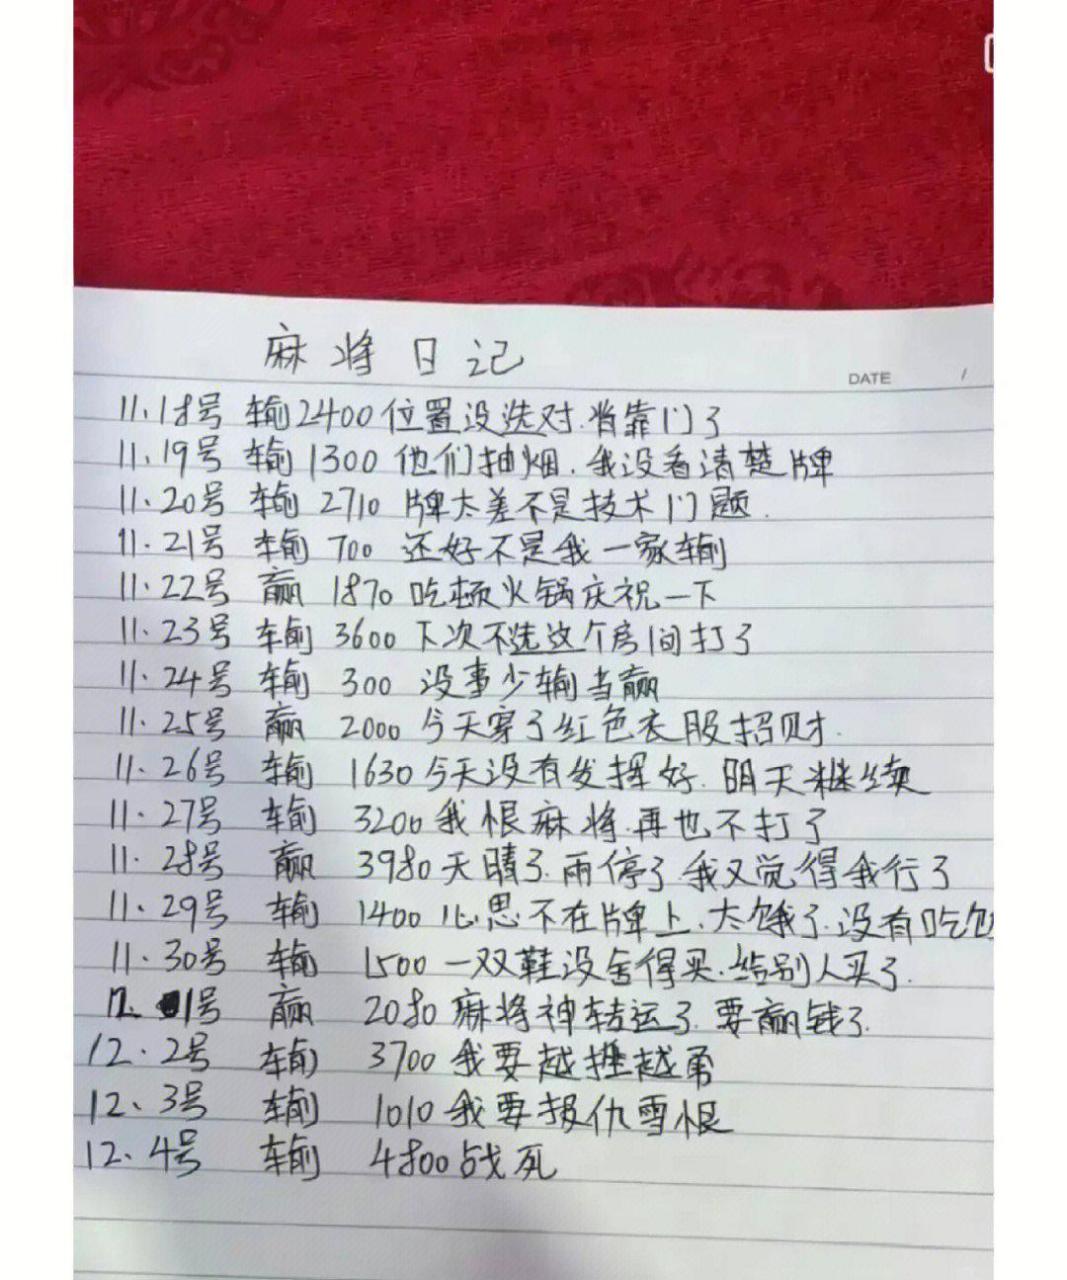 麻将日记
DATE /
11.18号 输2400 位置没选对.背靠门了
11.19号 输1300 他们抽烟.我没看清楚牌
11.20号 输 2710 牌太差不是技术门题.
11.21号 输 700 还好不是我一家输
11.22号 赢 1870 吃顿火锅庆祝一下
11.23号 输 3600 下次不选这个房间打了
11.24号 输 300 没事少输当赢
11.25号 赢 2000 今天穿了红色衣服招财.
11.26号 输 1630 今天没有发挥好.明天继续
11.27号 输 3200 我恨麻将.再也不打了
11.28号 赢 3980 天晴了.雨停了 我又觉得我行了
11.29号 输 1400 心思不在牌上.太饿了.没有吃饱
11.30号 输 1500 一双鞋没舍得买.给别人买了.
12. 1号 赢 2080 麻将神转运了.要赢钱了.
12.2号 输 3700 我要越挫越勇
12.3号 输 1010 我要报仇雪恨
12.4号 输 4800 战死